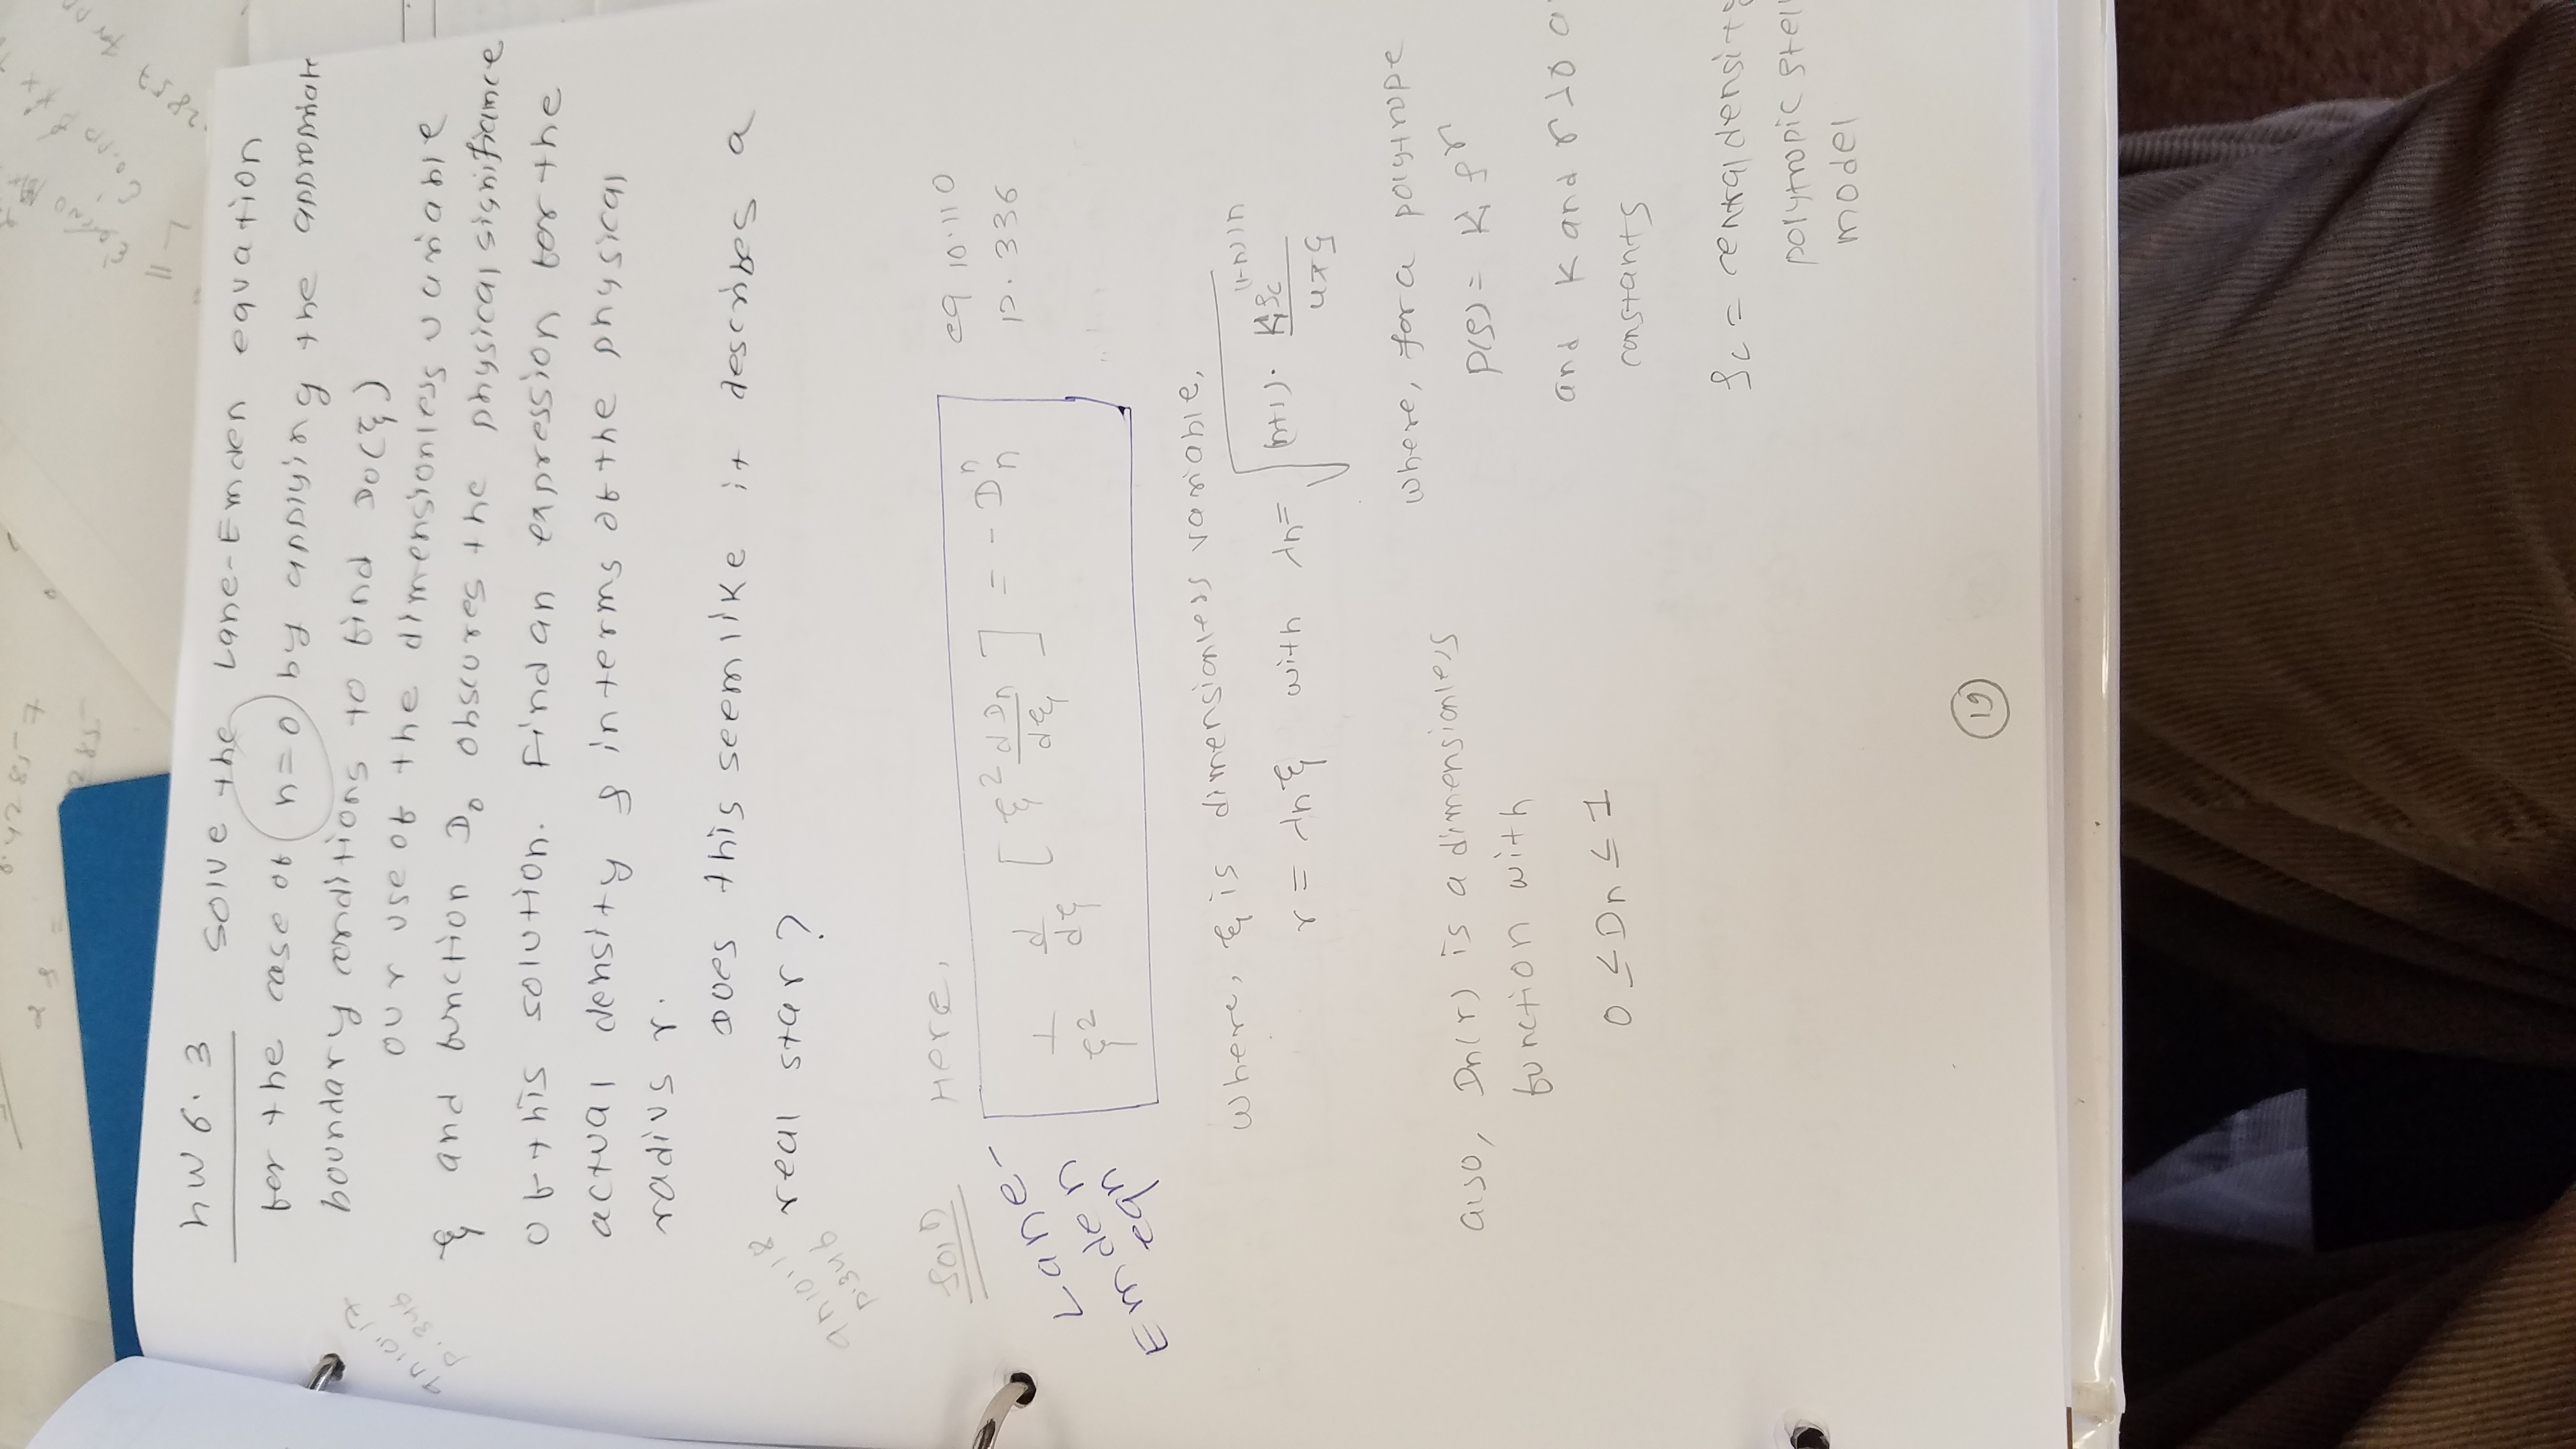 0.42857
285
2857
hw 6.3 Solve the Lane-Emden equation
for the case of n=0 by applying the appropriate
boundary conditions to find D0(ξ)
our use of the dimensionless variable
qn10.17
p.346
ξ and function D₀ obscures the physical signifiance
of this solution. Find an expression for the
actual density ρ in terms of the physical
radius r.
Does this seem like it describes a
real star?
qn10.18
p.346
Soln Here,
Lane-
Emden
eqn
1/ξ² d/dξ [ξ² dDn/dξ] = - Dn^n
eq 10.110
p. 336
where, ξ is dimensionless variable,
r = λn ξ with λn = √((n+1)· Kρc^((1-n)/n) / 4πG)
where, for a polytrope
P(ρ) = K ρ^γ
and K and γ>0 a
constants
ρc = central densit
polytropic stell
model
also, Dn(r) is a dimensionless
function with
0 ≤ Dn ≤ 1
19